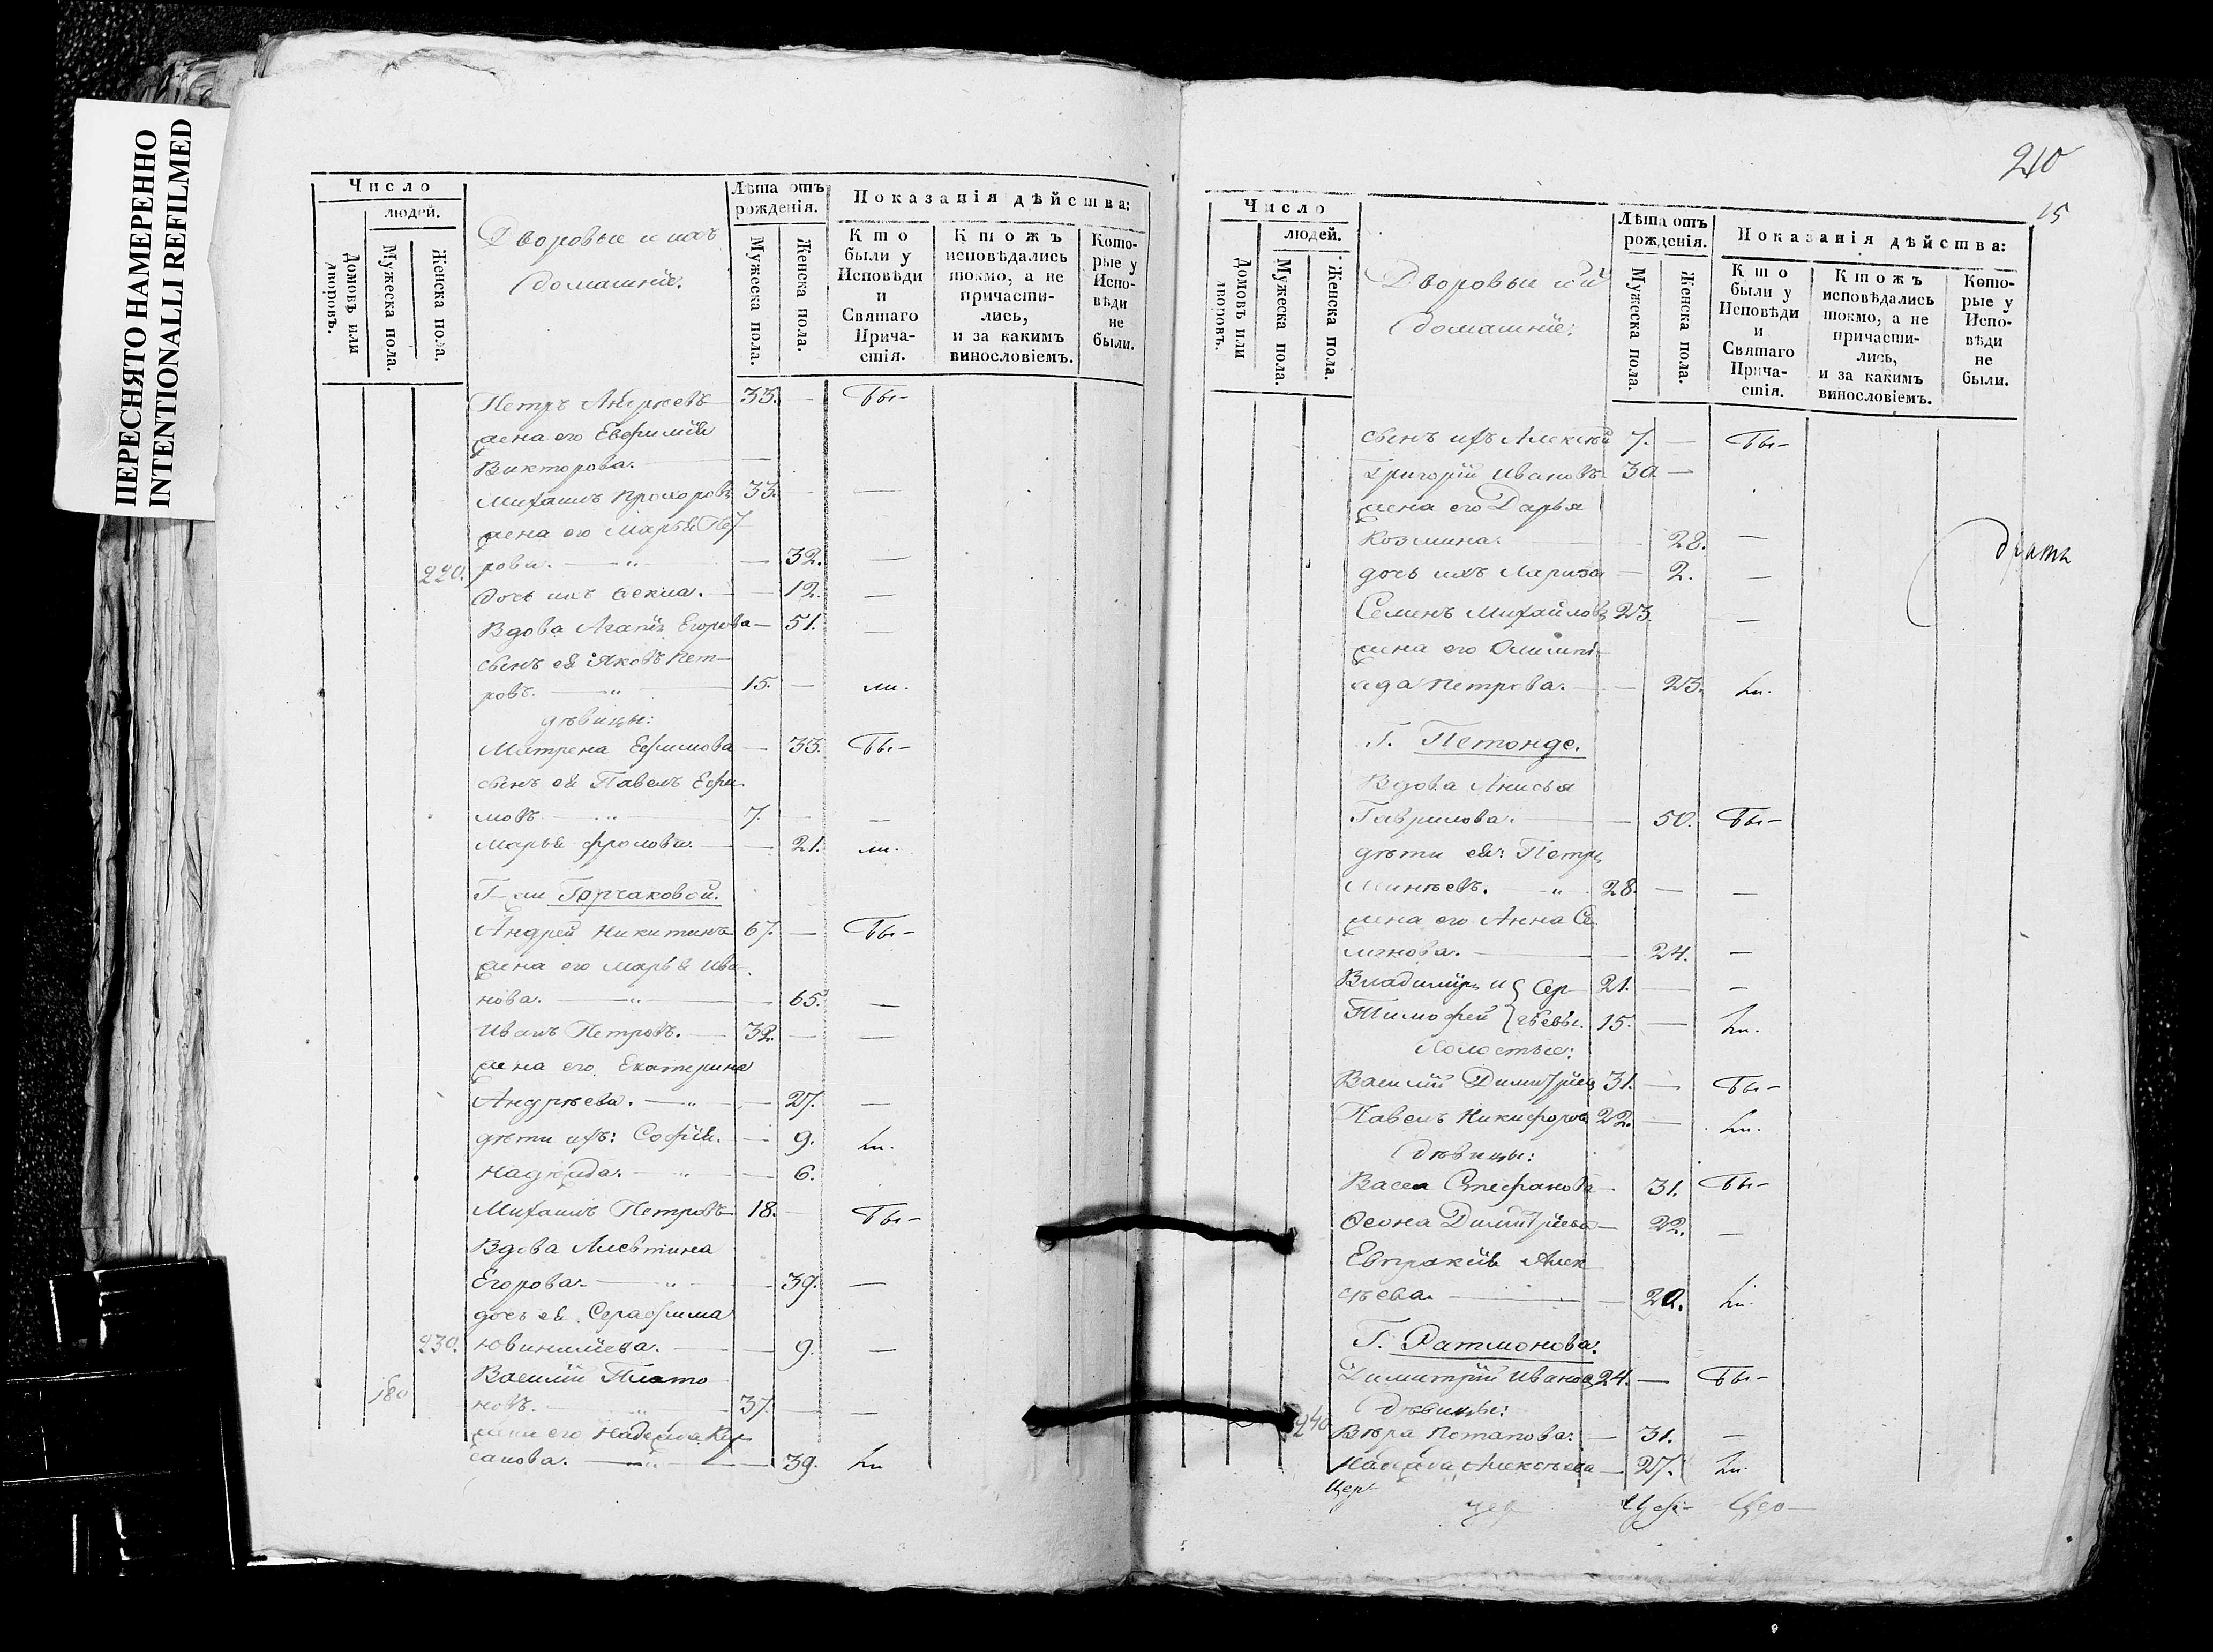 ПЕРЕСНЯТО НАМЕРЕННО
INTENTIONALLI REFILMED
Число
людей.
Домовъ или дворовъ.
Мужеска пола.
Женска пола.
Дворовые и ихъ
домашніе.
Лѣта отъ
рожденія.
Мужеска пола.
Женска пола.
Показанія дѣйства:
Кто
были у
Исповѣди
и
Святаго
Прича-
стія.
Ктожъ
исповѣдались
токмо, а не
причасти-
лись,
и за какимъ
винословіемъ.
Кото-
рые у
Испо-
вѣди
не
были.
Петръ Андреевъ 33. — Бы-
жена его Евфимія
Викторова. —
Михаилъ Прохоровъ 33. — —
жена его Марья Пет
220. рова. — „ — 32. —
дочь ихъ Фекла. — 12. —
Вдова Агапія Егорова — 51. —
сынъ ея Яковъ Пет-
ровъ. — „ — 15. — ли.
дѣвицы:
Матрена Ефимова — 33. Бы-
сынъ ея Павелъ Ефи
мовъ — „ — 7. — —
Марья Фролова. — 21. ли.
Г-жи Горчаковой.
Андрей Никитинъ 67. — Бы-
жена его Марья Ива-
нова. — „ — 65. —
Иванъ Петровъ. — 32. — —
жена его Екатерина
Андреева. — „ — 27. —
дѣти ихъ: Софія. — 9. ли.
Надежда. — „ — 6.
Михаилъ Петровъ 18. — Бы-
Вдова Алевтина
Егорова. — „ — 39. —
дочь ея Серафима
230. — 9. —
Василій Плато
180 новъ. — „ — 37. — —
жена его Надежда
— „ — 39. ли
210
15
Число
людей.
Домовъ или дворовъ.
Мужеска пола.
Женска пола.
Дворовые и и
домашніе:
Лѣта отъ
рожденія.
Мужеска пола.
Женска пола.
Показанія дѣйства:
Кто
были у
Исповѣди
и
Святаго
Прича-
стія.
Ктожъ
исповѣдались
токмо, а не
причасти-
лись,
и за какимъ
винословіемъ.
Кото-
рые у
Испо-
вѣди
не
были.
сынъ ихъ Алексѣй 7. — Бы-
Григорій Ивановъ 30. —
жена его Дарья
Козмина. — 28. —
дочь ихъ Лариса — 2. —
Семенъ Михайловъ 23. —
жена его Олимпі-
ада Петрова. — 23. ли.
Г. Петонде.
Вдова Анисья
Гаврилова. — 50. Бы-
дѣти ея: Петръ
Минѣевъ. — „ 28. — —
жена его Анна Се
менова. — 24. —
Владиміръ и Сер 21. — —
Тимофей гѣевы. 15. — ли.
Холостые:
Василій Димитріевъ 31. — Бы-
Павелъ Никифоровъ 22. — ли.
дѣвицы:
Васса Стефанова — 31. Бы-
Димитріева — 22. —
Евпраксія Алек
сѣева. — 20. ли.
Г. Ратмонова.
Димитрій Ивановъ 24. — Бы-
дѣвицы:
240 Вѣра Потапова. — 31. —
Надежда Алексѣева — 27. ли.
Цер